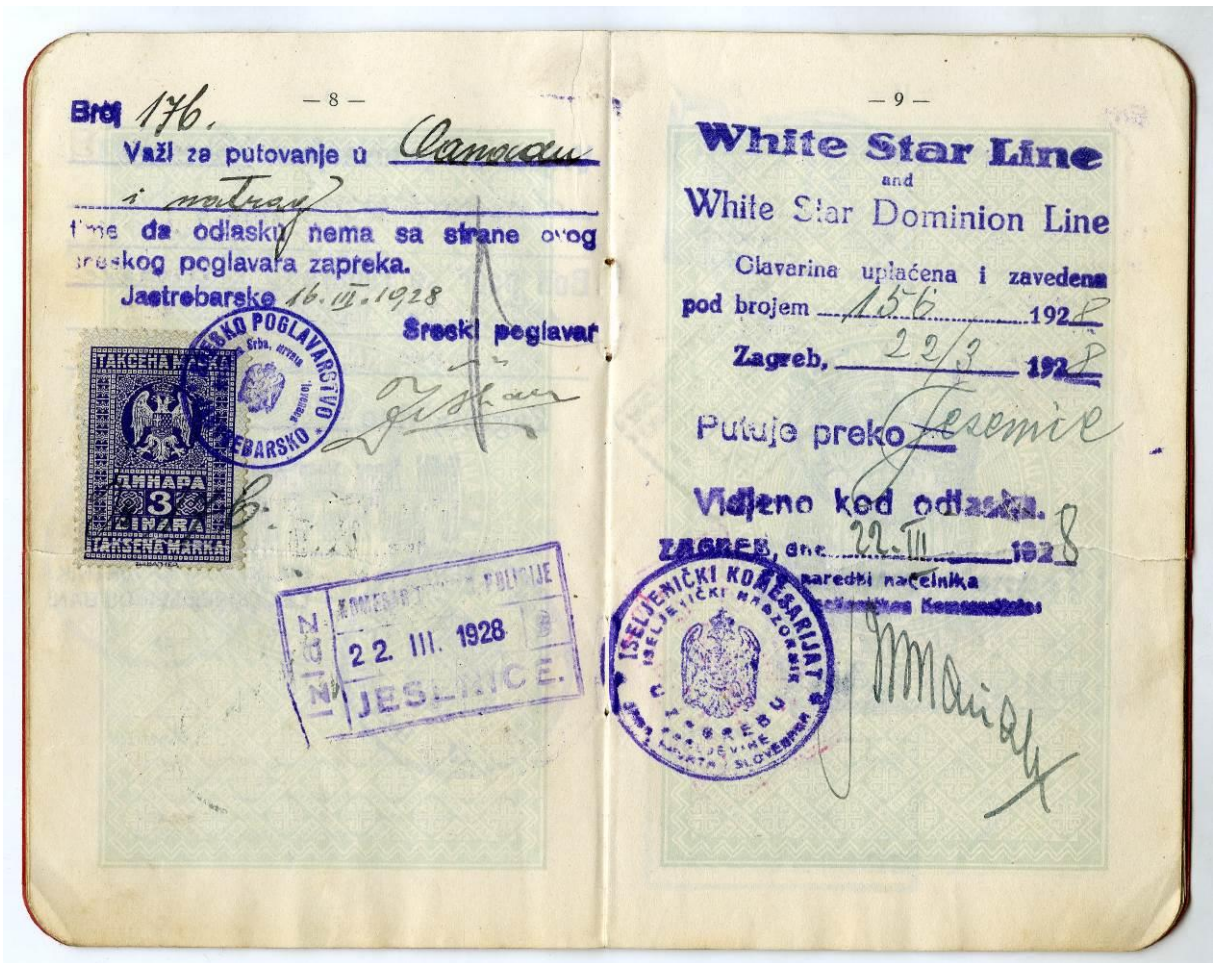 — 8 —
Broj 176.
Važi za putovanje u Canadu
i natrag
time da odlasku nema sa strane ovog
sreskog poglavara zapreka.
Jastrebarsko 16. III. 1928
Sreski poglavar
SRESKO POGLAVARSTVO
JASTREBARSKO
ТАКСЕНА МАРКА
ДИНАРА
3
DINARA
TAKSENA MARKA
KOMESAR POLICIJE
22 III. 1928
JESENICE.
— 9 —
White Star Line
and
White Star Dominion Line
Glavarina uplaćena i zavedena
pod brojem 156 1928
Zagreb, 22/3 1928
Putuje preko Jesenice
Vidjeno kod odlaska.
ZAGREB, dne 22. III 1928
naredbi načelnika
ISELJENIČKI KOMESARIJAT
U ZAGREBU
KRALJEVINE
SRBA, HRVATA I SLOVENACA